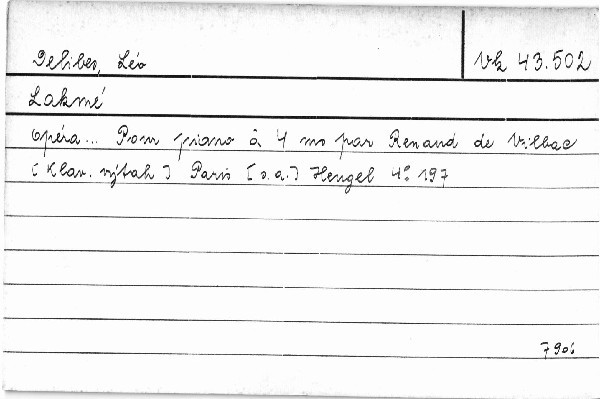 Delibes, Léo
Vk 43.502
Lakmé
opéra... Pour piano à 4 ms par Renaud de Vilbac
[Klav. výtah] Paris [s.a.] Heugel 4° 197